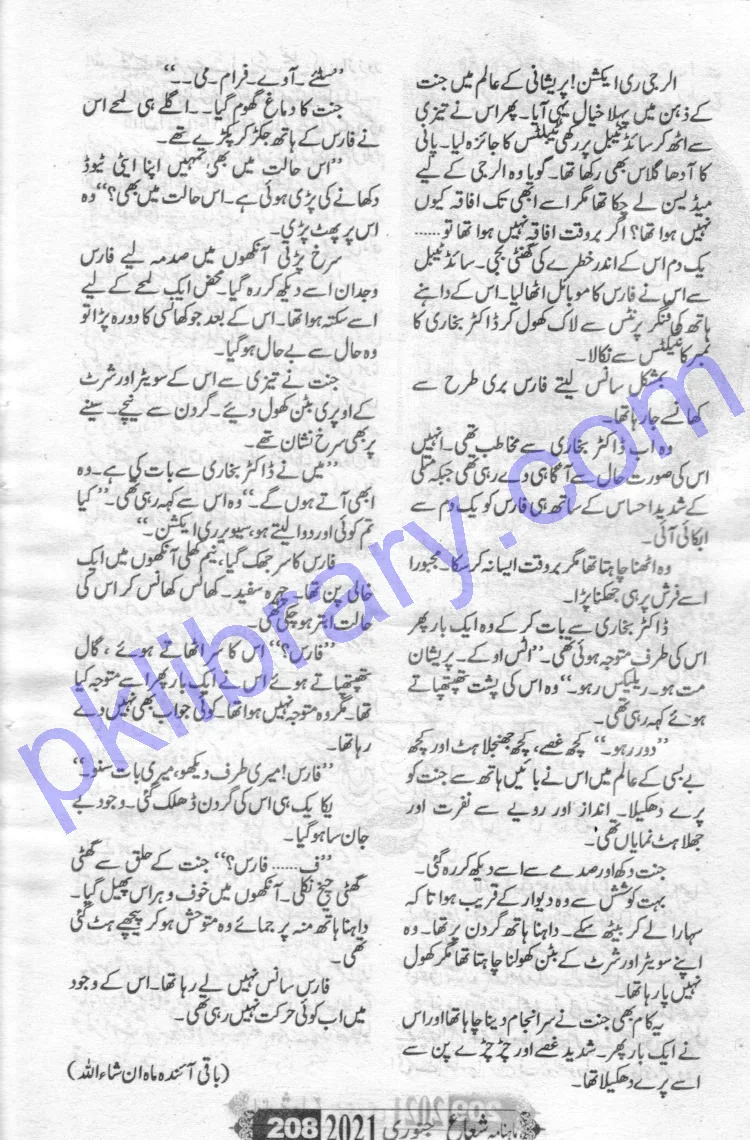 الرجی ری ایکشن! پریشانی کے عالم میں جنت
کے ذہن میں پہلا خیال یہی آیا۔ پھر اس نے تیزی
سے اٹھ کر سائڈ ٹیبل پر رکھی ٹیبلٹس کا جائزہ لیا۔ پانی
کا آدھا گلاس بھی رکھا تھا۔ گویا وہ الرجی کے لیے
میڈیسن لے چکا تھا مگر اسے ابھی تک افاقہ کیوں
نہیں ہوا تھا؟ اگر بروقت افاقہ نہیں ہوا تھا تو......
یک دم اس کے اندر خطرے کی گھنٹی بجی۔ سائڈ ٹیبل
سے اس نے فارس کا موبائل اٹھا لیا۔ اس کے داہنے
ہاتھ کی فنگر پرنٹس سے لاک کھول کر ڈاکٹر بخاری کا
نمبر کانٹیکٹس سے نکالا۔
بمشکل سانس لیتے فارس بری طرح سے
کھانسے جا رہا تھا۔
وہ اب ڈاکٹر بخاری سے مخاطب تھی۔ انہیں
اس کی صورت حال سے آگاہی دے رہی تھی جبکہ متلی
کے شدید احساس کے ساتھ ہی فارس کو یک دم سے
ابکائی آئی۔
وہ اٹھنا چاہتا تھا مگر بروقت ایسا نہ کر سکا۔ مجبورا
اسے فرش پر ہی جھکنا پڑا۔
ڈاکٹر بخاری سے بات کر کے وہ ایک بار پھر
اس کی طرف متوجہ ہوئی تھی۔ ”اٹس اوکے۔ پریشان
مت ہو۔ ریلیکس رہو۔“ وہ اس کی پشت تھپتھپاتے
ہوئے کہہ رہی تھی۔
”دور رہو۔“ کچھ غصے، کچھ جھنجلاہٹ اور کچھ
بے بسی کے عالم میں اس نے بائیں ہاتھ سے جنت کو
پرے دھکیلا۔ انداز اور رویے سے نفرت اور
جھلاہٹ نمایاں تھی۔
جنت دکھ اور صدمے سے اسے دیکھ کر رہ گئی۔
بہت کوشش سے وہ دیوار کے قریب ہوا تا کہ
سہارا لے کر بیٹھ سکے۔ داہنا ہاتھ گردن پر تھا۔ وہ
اپنے سویٹر اور شرٹ کے بٹن کھولنا چاہتا تھا مگر کھول
نہیں پا رہا تھا۔
یہ کام بھی جنت نے سر انجام دینا چاہا تھا اور اس
نے ایک بار پھر۔ شدید غصے اور چڑچڑے پن سے
اسے پرے دھکیلا تھا۔
”سٹے۔ آوے۔ فرام۔ می۔۔“
جنت کا دماغ گھوم گیا۔۔ اگلے ہی لمحے اس
نے فارس کے ہاتھ جکڑ کر پکڑے تھے۔
”اس حالت میں بھی تمہیں اپنا ایٹی ٹیوڈ
دکھانے کی پڑی ہوئی ہے۔ اس حالت میں بھی؟“ وہ
اس پر پھٹ پڑی۔
سرخ پڑتی آنکھوں میں صدمہ لیے فارس
وجدان اسے دیکھ کر رہ گیا۔ محض ایک لمحے کے لیے
اسے سکتہ ہوا تھا۔ اس کے بعد جو کھانسی کا دورہ پڑا تو
وہ حال سے بے حال ہو گیا۔
جنت نے تیزی سے اس کے سویٹر اور شرٹ
کے اوپری بٹن کھول دیے۔ گردن سے نیچے۔ سینے
پر بھی سرخ نشان تھے۔
”میں نے ڈاکٹر بخاری سے بات کی ہے۔ وہ
ابھی آتے ہوں گے۔“ وہ اس سے کہہ رہی تھی۔ ”کیا
تم کوئی اور دوا لیتے ہو، سیویر ری ایکشن۔“
فارس کا سر جھک گیا، نیم کھلی آنکھوں میں ایک
خالی پن تھا۔ چہرہ سفید۔ کھانس کھانس کر اس کی
حالت ابتر ہو چکی تھی۔
”فارس؟“ اس کا سر اٹھاتے ہوئے، گال
تھپتھپاتے ہوئے اس نے ایک بار پھر اسے متوجہ کیا
تھا۔ مگر وہ متوجہ نہیں ہوا تھا۔ کوئی جواب بھی نہیں دے
رہا تھا۔
”فارس! میری طرف دیکھو، میری بات سنو۔“
یکایک ہی اس کی گردن ڈھلک گئی۔ وجود بے
جان سا ہو گیا۔
”ف...... فارس؟“ جنت کے حلق سے گھٹی
گھٹی چیخ نکلی۔ آنکھوں میں خوف و ہراس پھیل گیا۔
داہنا ہاتھ منہ پر جمائے وہ متوحش ہو کر پیچھے ہٹ گئی
تھی۔
فارس سانس نہیں لے رہا تھا۔ اس کے وجود
میں اب کوئی حرکت نہیں رہی تھی۔
(باقی آئندہ ماہ ان شاء اللہ)
ماہنامہ شعاع جنوری 2021 208
pklibrary.com